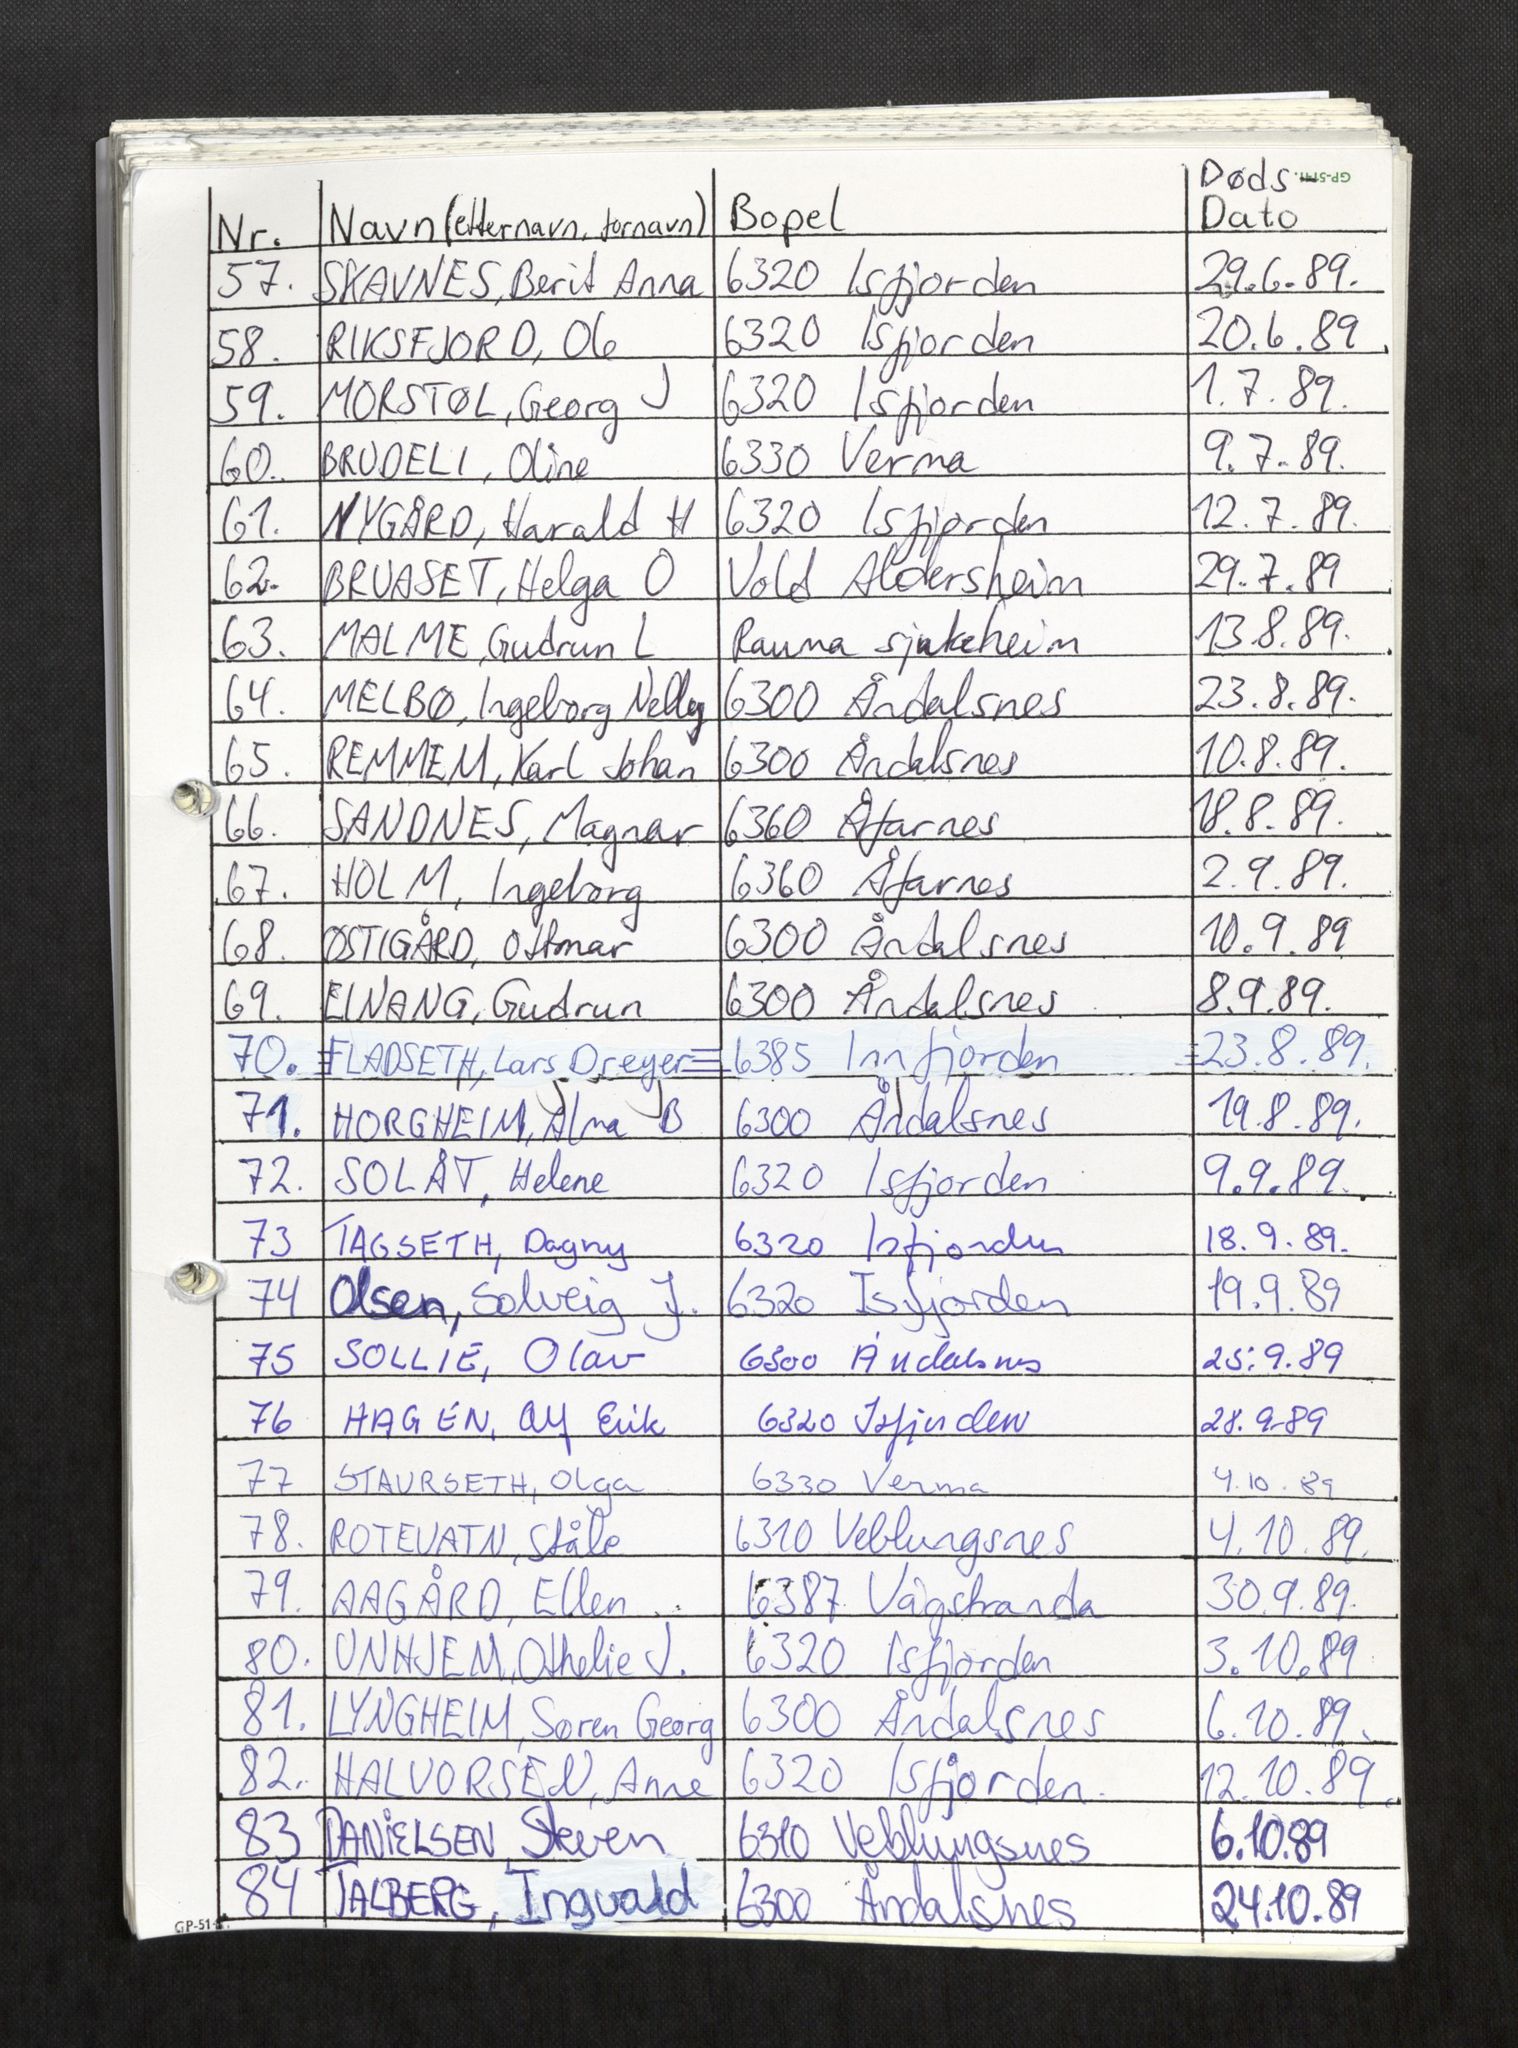 GP-5141
Nr. Navn (etternavn, fornavn) Bopel Døds-Dato
57. SKAVNES, Berit Anna 6320 Isfjorden 29.6.89.
58. RIKSFJORD, Ole 6320 Isfjorden 20.6.89
59. MORSTØL, Georg J 6320 Isfjorden 1.7.89.
60. BRUDELI, Oline 6330 Verma 9.7.89.
61. NYGÅRD, Harald H 6320 Isfjorden 12.7.89.
62. BRUASET, Helga O Vold Aldersheim 29.7.89
63. MALME, Gudrun L Rauma sjukeheim 13.8.89.
64. MELBØ, Ingeborg Nelly 6300 Åndalsnes 23.8.89.
65. REMMEM, Karl Johan 6300 Åndalsnes 10.8.89.
66. SANDNES, Magnar 6360 Åfarnes 18.8.89.
67. HOLM, Ingeborg 6360 Åfarnes 2.9.89.
68. ØSTIGÅRD, Ottmar 6300 Åndalsnes 10.9.89
69. EINANG, Gudrun 6300 Åndalsnes 8.9.89.
70. FLADSETH, Lars Dreyer 6385 Innfjorden 23.8.89.
71. HORGHEIM, Alma B 6300 Åndalsnes 19.8.89.
72. SOLÅT, Helene 6320 Isfjorden 9.9.89.
73 TAGSETH, Dagny 6320 Isfjorden 18.9.89.
74 Olsen, Solveig J. 6320 Isfjorden 19.9.89
75 SOLLIE, Olav 6300 Åndalsnes 25.9.89
76 HAGEN, Alf Erik 6320 Isfjorden 28.9.89
77 STAURSETH, Olga 6330 Verma 4.10.89
78. ROTEVATN, Ståle 6310 Veblungsnes 4.10.89.
79. AAGÅRD, Ellen 6387 Vågstranda 30.9.89.
80. UNHJEM, Othelie J. 6320 Isfjorden 3.10.89
81. LYNGHEIM, Søren Georg 6300 Åndalsnes 6.10.89.
82. HALVORSEN, Anne 6320 Isfjorden. 12.10.89.
83 DANIELSEN, Steven 6310 Veblungsnes 6.10.89
84 TALBERG, Ingvald 6300 Åndalsnes 24.10.89
GP-51